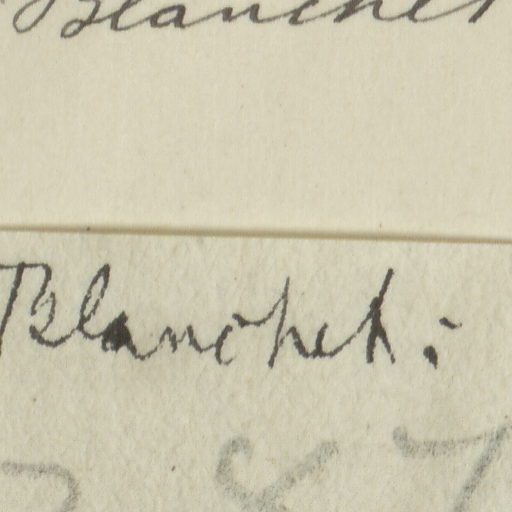 Blanchet
Blanchet:
87